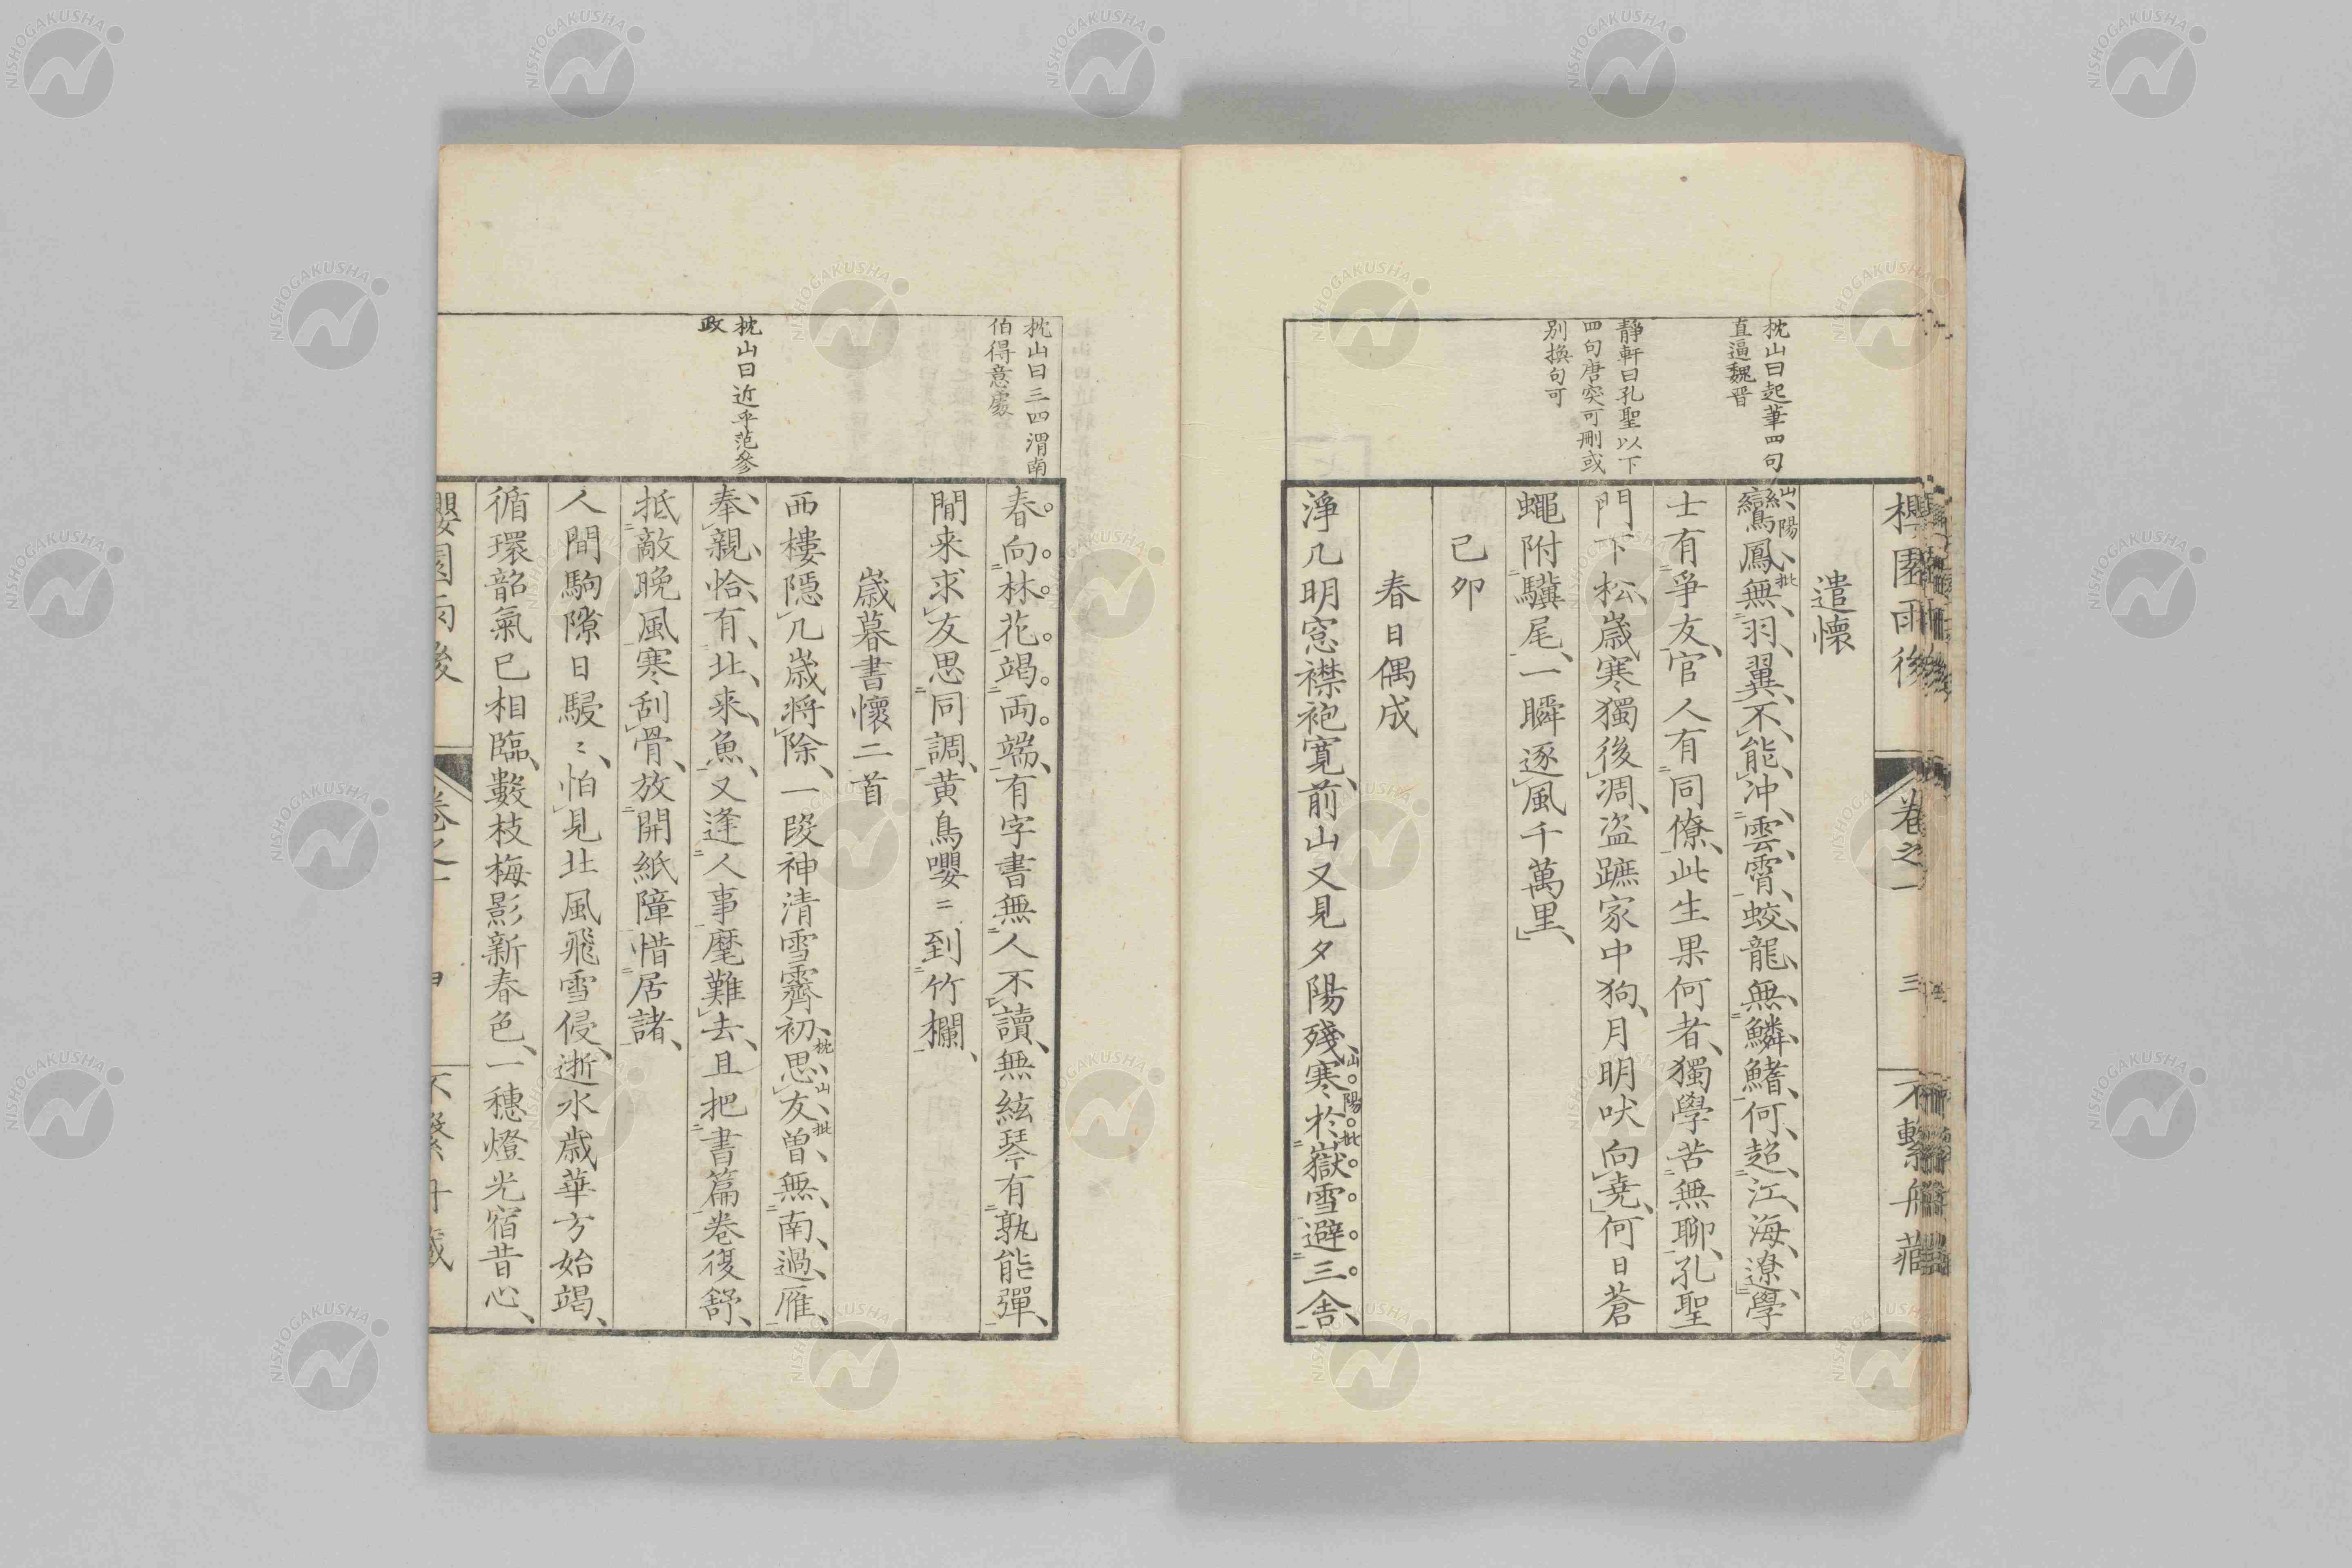 櫻園雨後 卷之一 三 不繫舟藏
枕山曰起筆四句
直逼魏晉
靜軒曰孔聖以下
四句唐突可刪或
別換句可
遣懷
山陽批
鸞鳳無羽翼不能冲雲霄蛟龍無鱗鰭何超江海遼學
士有爭友官人有同僚此生果何者獨學苦無聊孔聖
門下松歲寒獨後凋盜蹠家中狗月明吠向堯何日蒼
蠅附驥尾一瞬逐風千萬里
己卯
春日偶成
淨几明窓襟袍寬前山又見夕陽殘寒於嶽雪避三舍
山陽批
枕山曰三四渭南
伯得意處
枕山曰近乎范參
政
春向林花竭両端有字書無人不讀無絃琴有孰能彈
間来求友思同調黃鳥嚶〻到竹欄
歲暮書懷二首
西樓隱几歲將除一段神清雪霽初思友曾無南過雁
枕山批
奉親恰有北来魚又逢人事麾難去且把書篇卷復舒
抵敵晚風寒刮骨放開紙障惜居諸
人間駒隙日駸〻怕見北風飛雪侵逝水歲華方始竭
循環韶氣已相臨數枝梅影新春色一穗燈光宿昔心
櫻園雨後 卷之一 不繫舟藏
NISHOGAKUSHA